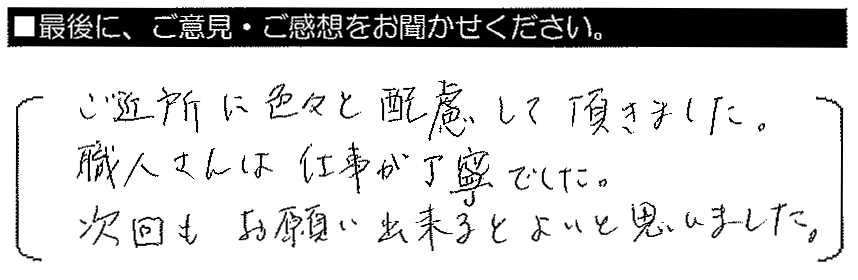 ■最後に、ご意見・ご感想をお聞かせください。
ご近所に色々と配慮して頂きました。
職人さんは仕事が丁寧でした。
次回もお願い出来るとよいと思いました。